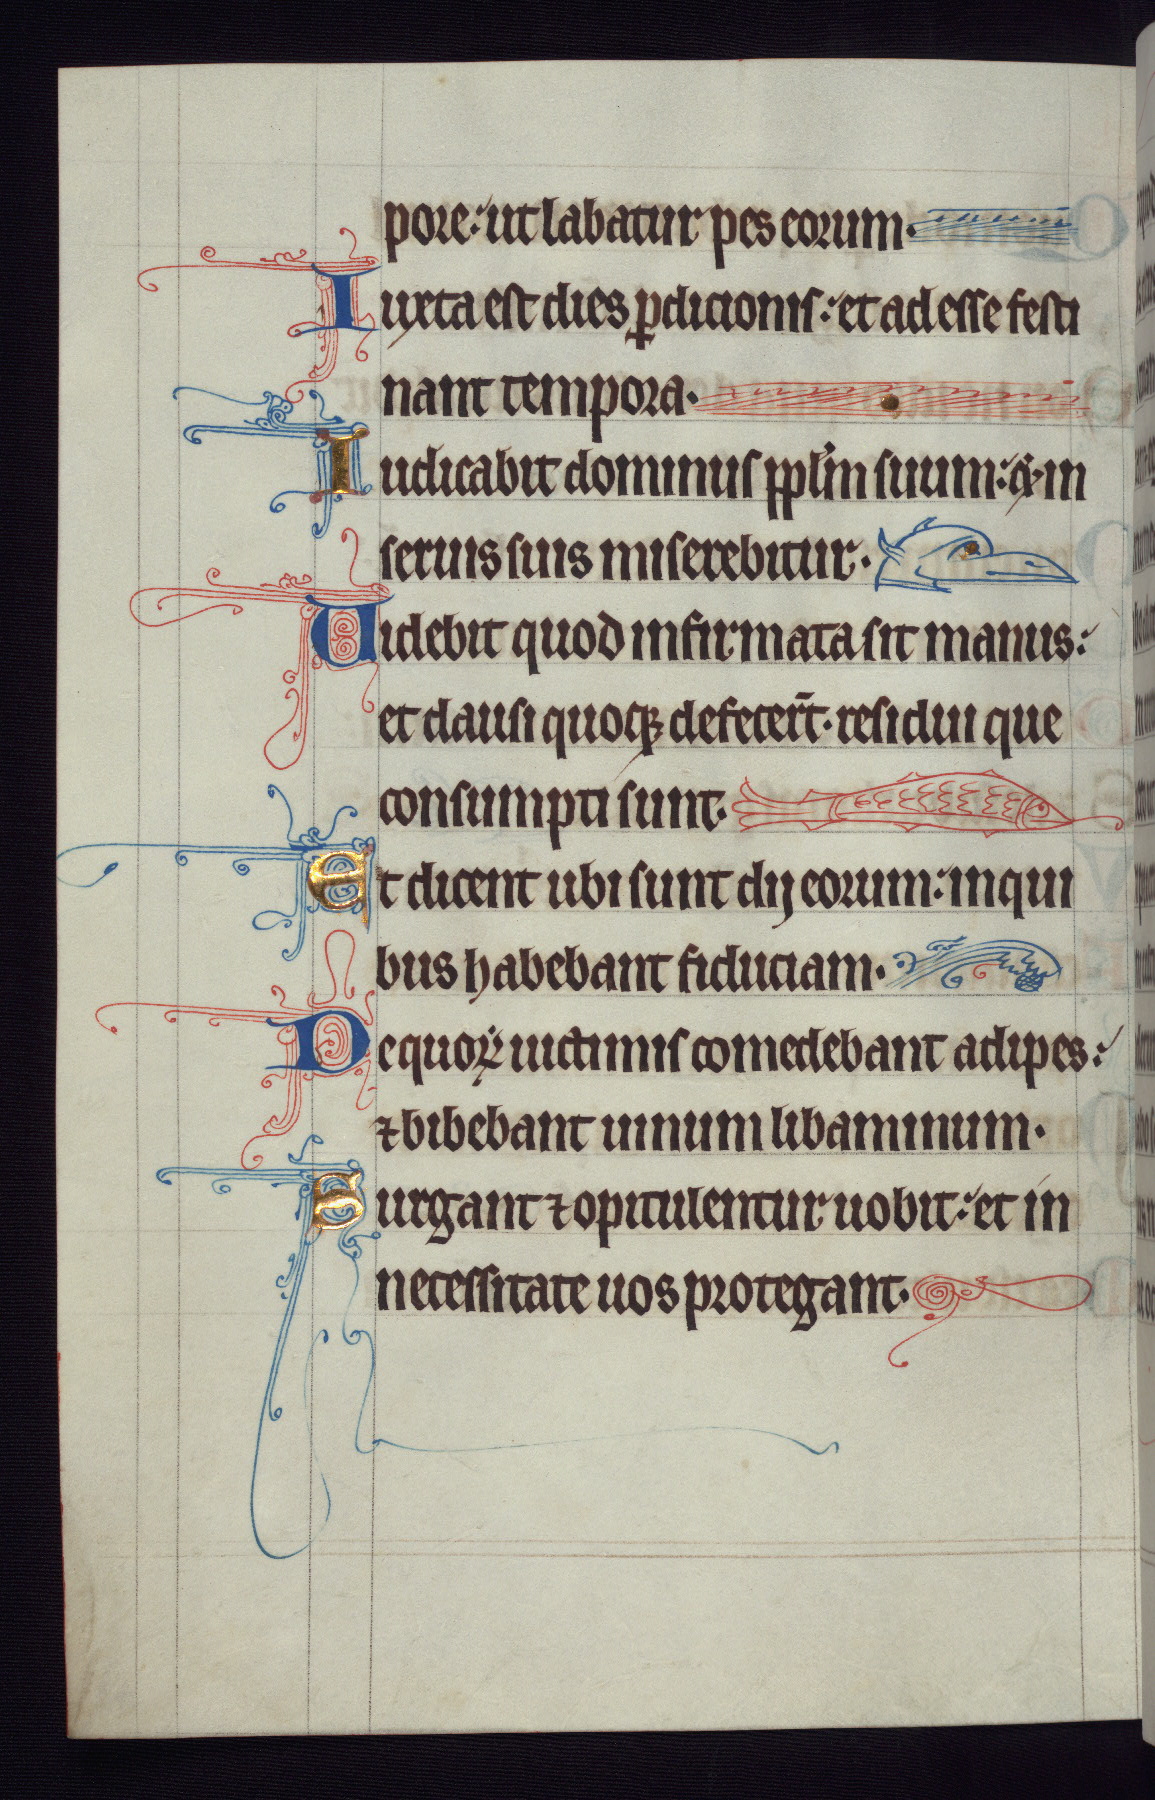 pore: ut labatur pes eorum.
Iuxta est dies p̲dicionis: et adesse festi
nant tempora.
Iudicabit dominus pp̄lm suum: ⁊ in
seruis suis miserebitur.
Uidebit quod infirmata sit manus:
et clausi quoqꝫ defecer̄t. residui que
consumpti sunt.
Et dicent ubi sunt dij eorum: in qui
bus habebant fiduciam.
De quoꝝ uictimis comedebant adipes:
⁊ bibebant uinum libaminum.
Surgant ⁊ opitulentur uobit: et in
necessitate uos protegant.